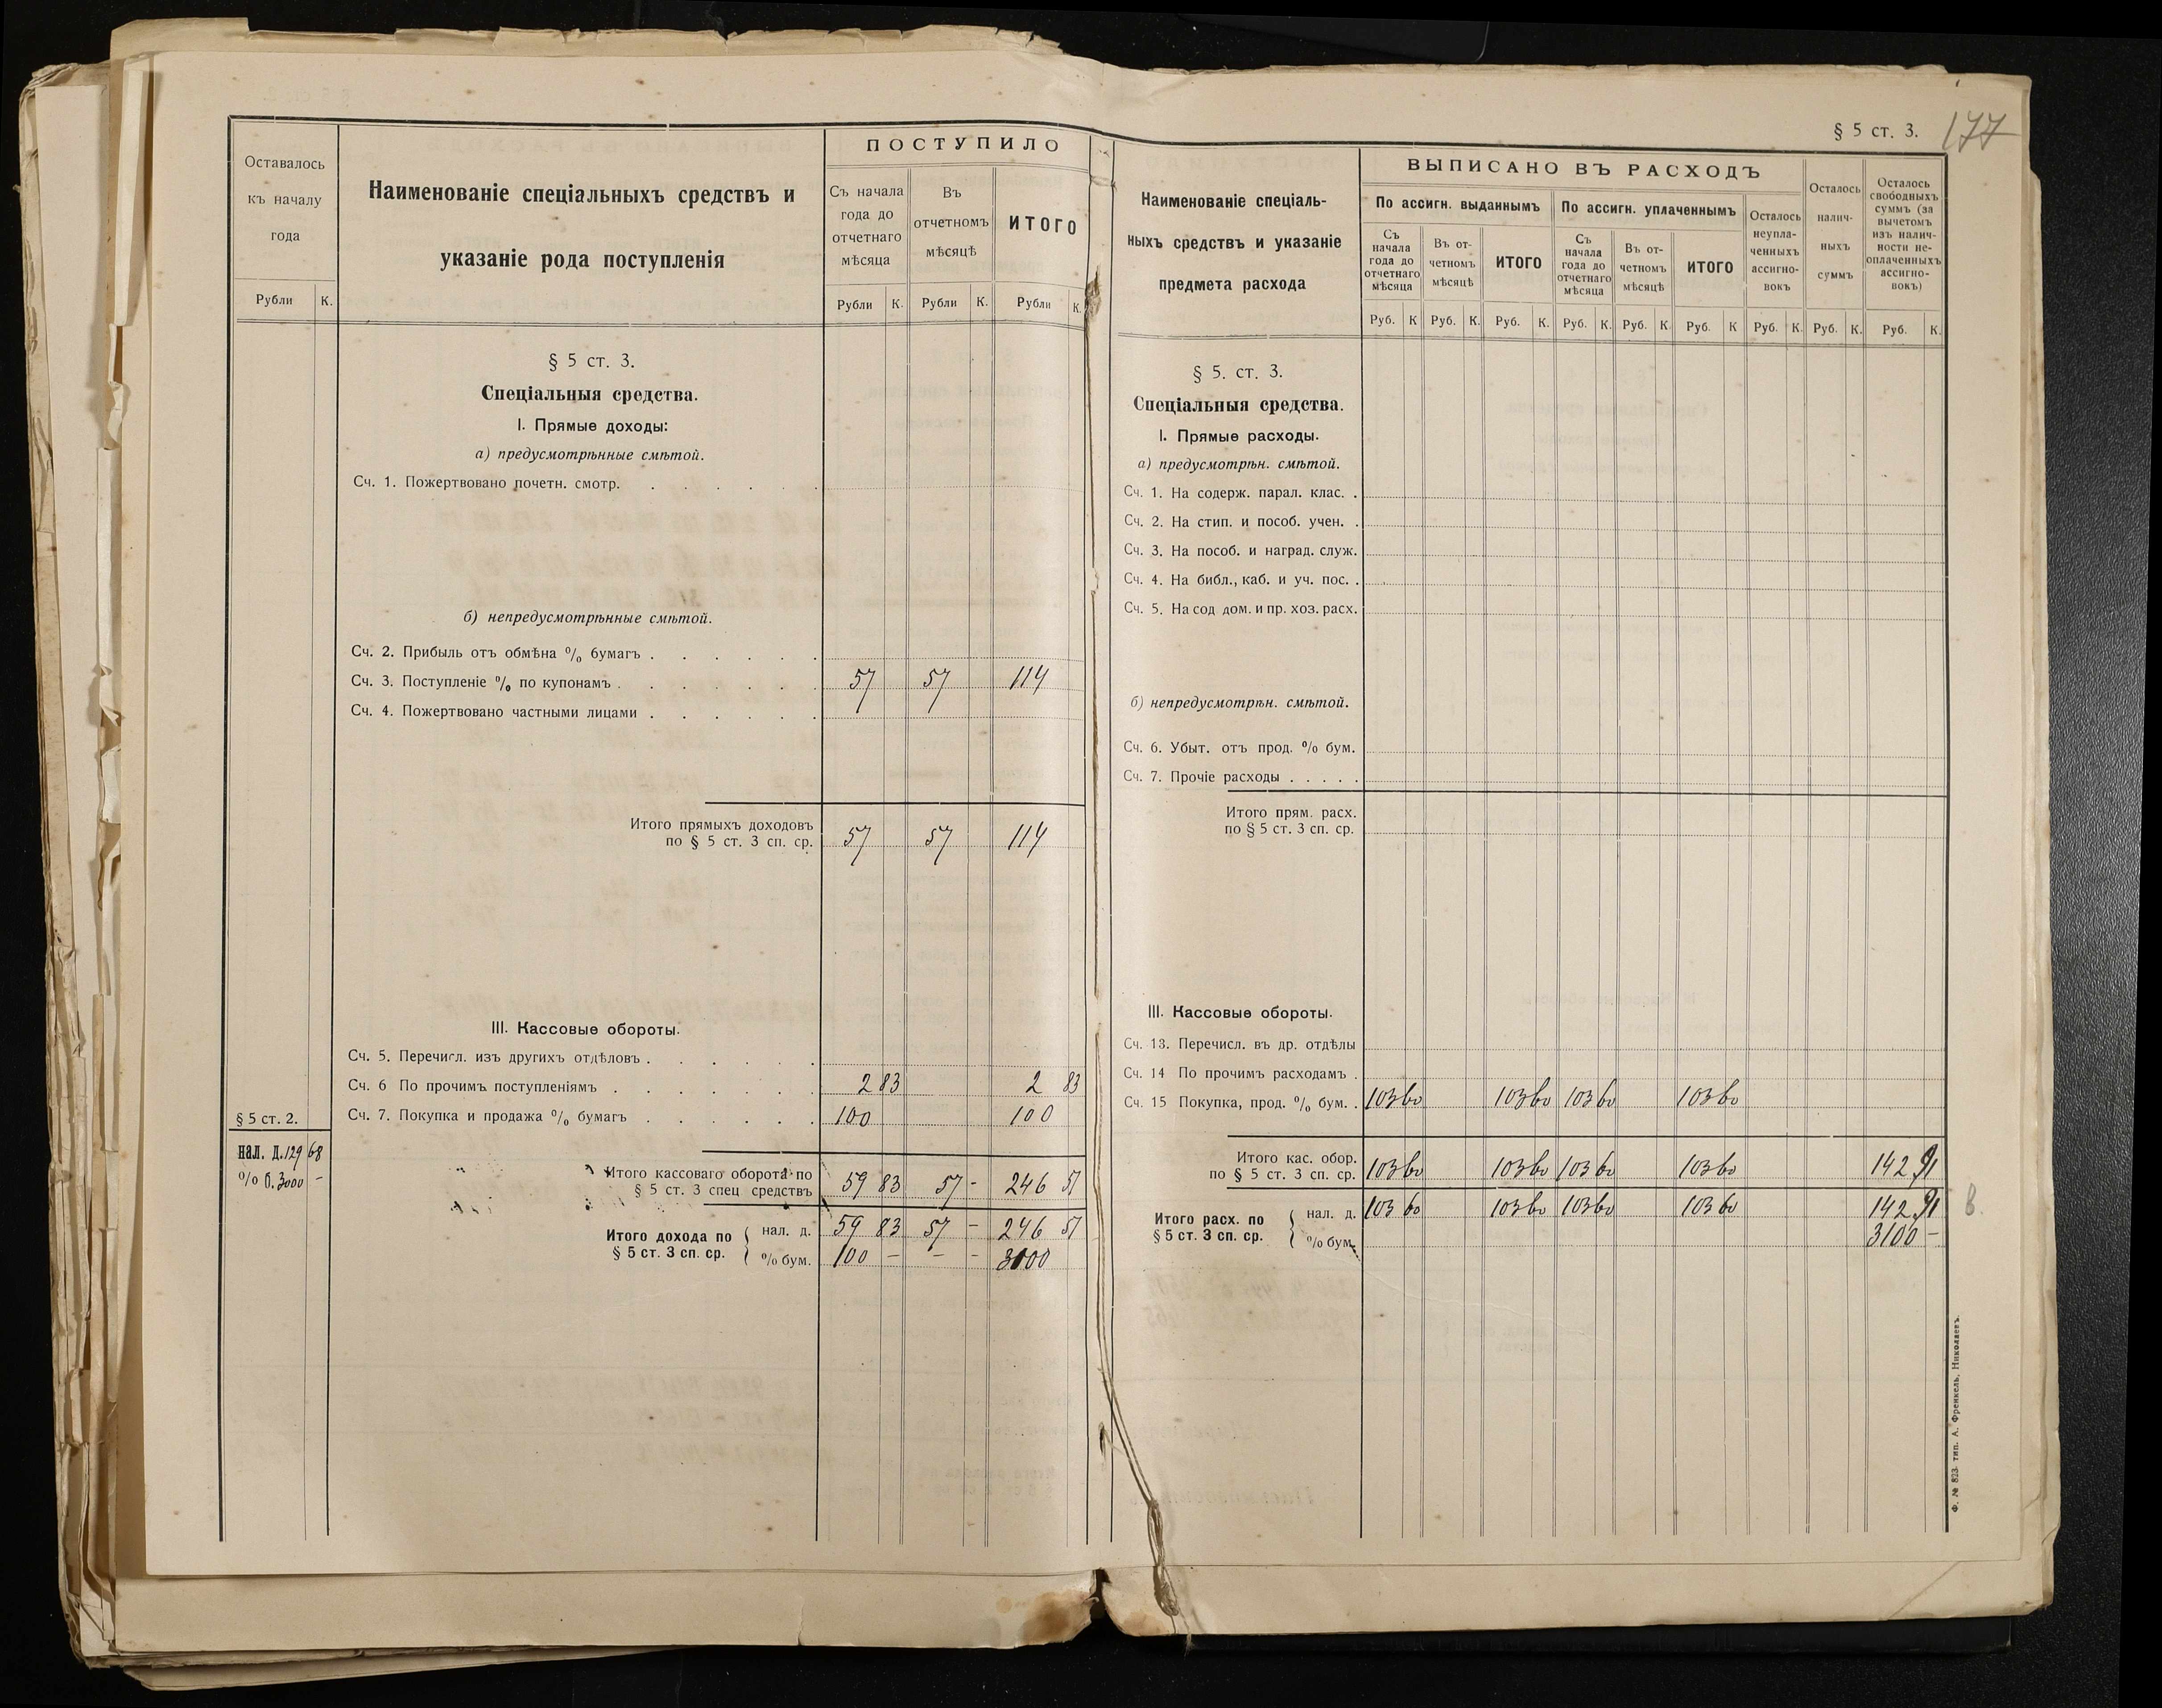 § 5 ст. 3.
177
Оставалось
къ началу
года
Рубли К.
Наименованіе спеціальныхъ средствъ и
указаніе рода поступленія
ПОСТУПИЛО
Съ начала
года до
отчетнаго
мѣсяца
Въ
отчетномъ
мѣсяцѣ
ИТОГО
Рубли К. Рубли К. Рубли К.
§ 5 ст. 3.
Спеціальныя средства.
I. Прямые доходы:
а) предусмотрѣнные смѣтой.
Сч. 1. Пожертвовано почетн. смотр.
б) непредусмотрѣнные смѣтой.
Сч. 2. Прибыль отъ обмѣна % бумагъ
Сч. 3. Поступленіе % по купонамъ 57 57 114
Сч. 4. Пожертвовано частными лицами
Итого прямыхъ доходовъ
по § 5 ст. 3 сп. ср. 57 57 114
III. Кассовые обороты.
Сч. 5. Перечисл. изъ другихъ отдѣловъ
Сч. 6 По прочимъ поступленіямъ 2 83 2 83
Сч. 7. Покупка и продажа % бумагъ 100 100
§ 5 ст. 2.
нал. д. 129 68
% б. 3000 —
Итого кассоваго оборота по
§ 5 ст. 3 спец средствъ 59 83 57 - 246 51
Итого дохода по
§ 5 ст. 3 сп. ср.
нал. д. 59 83 57 — 246 51
% бум. 100 — — - 3100
Наименованіе спеціаль-
ныхъ средствъ и указаніе
предмета расхода
ВЫПИСАНО ВЪ РАСХОДЪ
По ассигн. выданнымъ
По ассигн. уплаченнымъ
Съ
начала
года до
отчетнаго
мѣсяца
Въ от-
четномъ
мѣсяцѣ
ИТОГО
Съ
начала
года до
отчетнаго
мѣсяца
Въ от-
четномъ
мѣсяцѣ
ИТОГО
Осталось
неупла-
ченныхъ
ассигно-
вокъ
Осталось
налич-
ныхъ
суммъ
Осталось
свободныхъ
суммъ (за
вычетомъ
изъ налич-
ности не-
оплаченныхъ
ассигно-
вокъ)
Руб. К Руб. К. Руб. К. Руб. К. Руб. К. Руб. К Руб. К. Руб. К. Руб. К.
§ 5. ст. 3.
Спеціальныя средства.
I. Прямые расходы.
а) предусмотрѣн. смѣтой.
Сч. 1. На содерж. парал. клас.
Сч. 2. На стип. и пособ. учен.
Сч. 3. На пособ. и наград. служ.
Сч. 4. На библ., каб. и уч. пос.
Сч. 5. На сод дом. и пр. хоз. расх.
б) непредусмотрѣн. смѣтой.
Сч. 6. Убыт. отъ прод. % бум.
Сч. 7. Прочіе расходы
Итого прям. расх.
по § 5 ст. 3 сп. ср.
III. Кассовые обороты.
Сч. 13. Перечисл. въ др. отдѣлы
Сч. 14 По прочимъ расходамъ
Сч. 15 Покупка, прод. % бум. 103 60 103 60 103 60 103 60
Итого кас. обор.
по § 5 ст. 3 сп. ср. 103 60 103 60 103 60 103 60 142 91
Итого расх. по
§ 5 ст. 3 сп. ср.
нал. д. 103 60 103 60 103 60 103 60 142 91
% бум. 3100 —
Ф. № 823. тип. А. Френкель, Николаевъ.